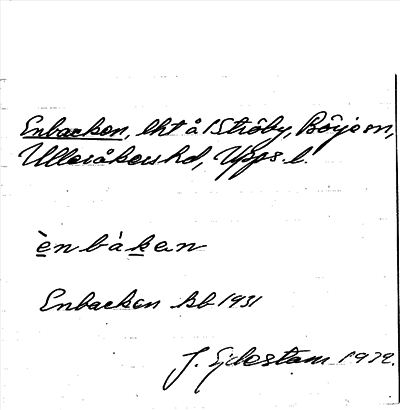 Enbacken, lht å 1 Ströby, Börje sn,
Ulleråkers hd, Upps. l.
ènbàken
Enbacken kb 1931
J. Ejdestam 1972.